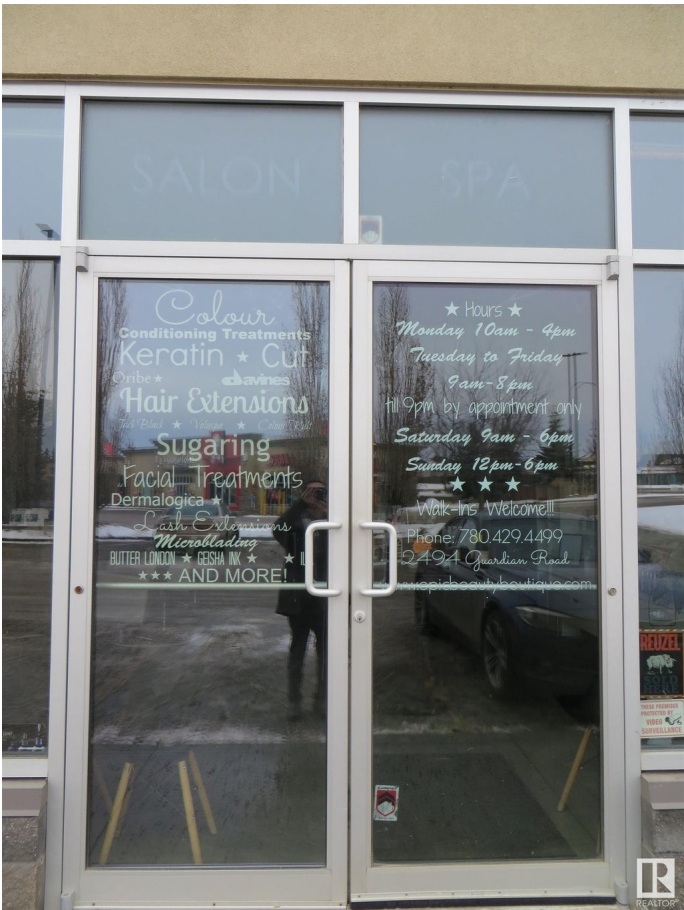 SALON SPA
Colour
Conditioning Treatments
Keratin ★ Cut
Oribe ★ davines
Hair Extensions
Jack Black ★ Voluspa ★ Colour Kult
Sugaring
Facial Treatments
Dermalogica ★
Lash Extensions
Microblading
BUTTER LONDON ★ GEISHA INK ★ ★
★★★ AND MORE!
★ Hours ★
Monday 10am - 4pm
Tuesday to Friday
9am-8pm
till 9pm by appointment only
Saturday 9am - 6pm
Sunday 12pm-6pm
★ ★ ★
Walk-Ins Welcome!!!
Phone: 780.429.4499
2494 Guardian Road
www.epicbeautyboutique.com
REUZEL
THESE PREMISES
PROTECTED BY
VIDEO
SURVEILLANCE
REALTOR